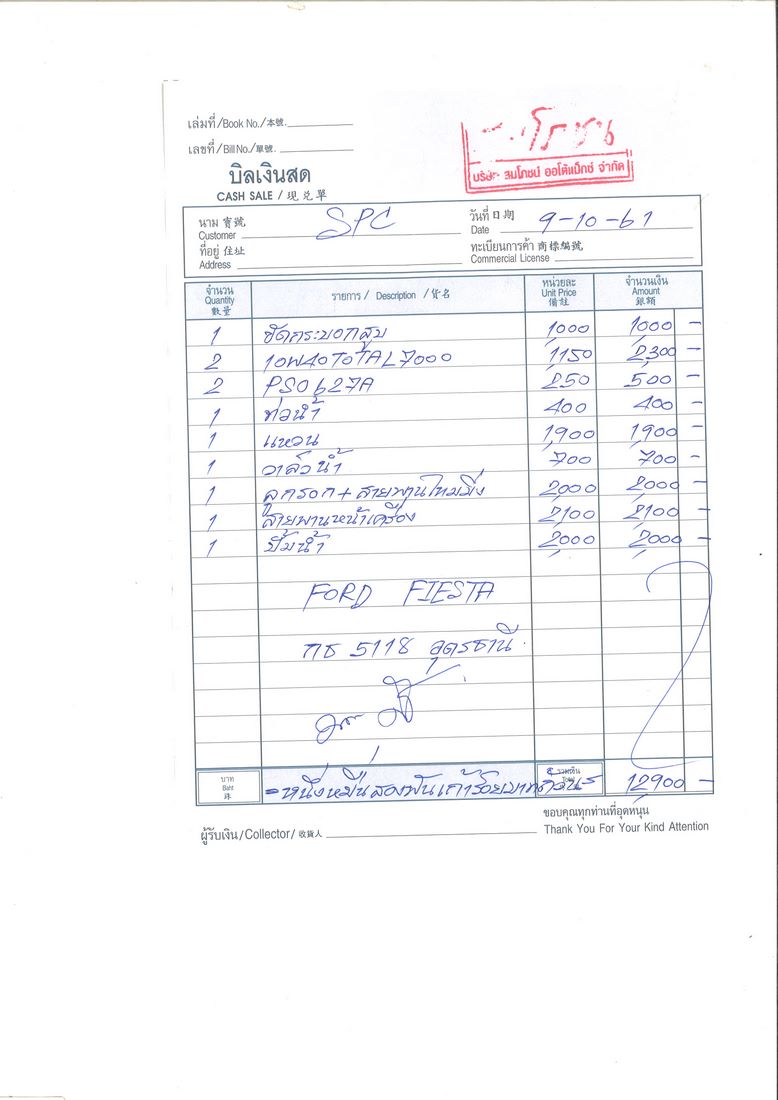 เล่มที่/Book No./本號.
เลขที่/Bill No./單號.
โภชน์
บริษัท สมโภชน์ ออโต้แม็กซ์ จำกัด
บิลเงินสด
CASH SALE / 現兌單
นาม 寶號 Customer SPC วันที่ 日期 Date 9-10-61
ที่อยู่ 住址 Address ทะเบียนการค้า 商標編號 Commercial License
จำนวน Quantity 數量 รายการ / Description / 貨名 หน่วยละ Unit Price 備註 จำนวนเงิน Amount 銀額
1 ขัดกระบอกสูบ 1000 1000 -
2 10W40 TOTAL 7000 1150 2,300 -
2 PSO627A 250 500 -
1 ท่อน้ำ 400 400 -
1 แหวน 1,900 1,900 -
1 วาล์วน้ำ 700 700 -
1 ลูกรอก + สายพานไทม์มิ่ง 2000 2000 -
1 สายพานหน้าเครื่อง 2100 2100 -
1 ปั้มน้ำ 2000 2000 -
FORD FIESTA
กธ 5118 อุดรธานี
บาท Baht 銖 = หนึ่งหมื่นสองพันเก้าร้อยบาทถ้วน = รวมเงิน Total 12900 -
ขอบคุณทุกท่านที่อุดหนุน
ผู้รับเงิน/Collector/收貨人 Thank You For Your Kind Attention